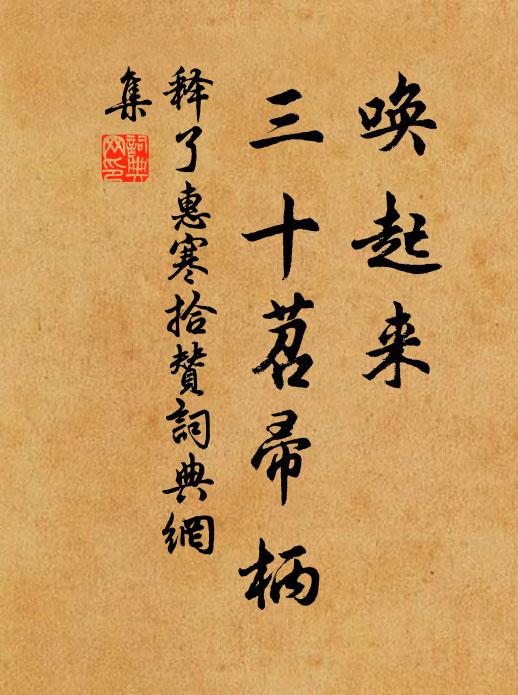 唤起来
三十苕帚柄
释了惠寒拾赞詞典網
集
詞典网印